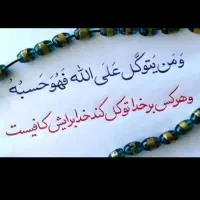 وَمَن يَتَوَكَّل عَلَى اللّه فَهُوَ حَسبُه
و هر کس بر خدا توکل کند خدا برایش کافیست